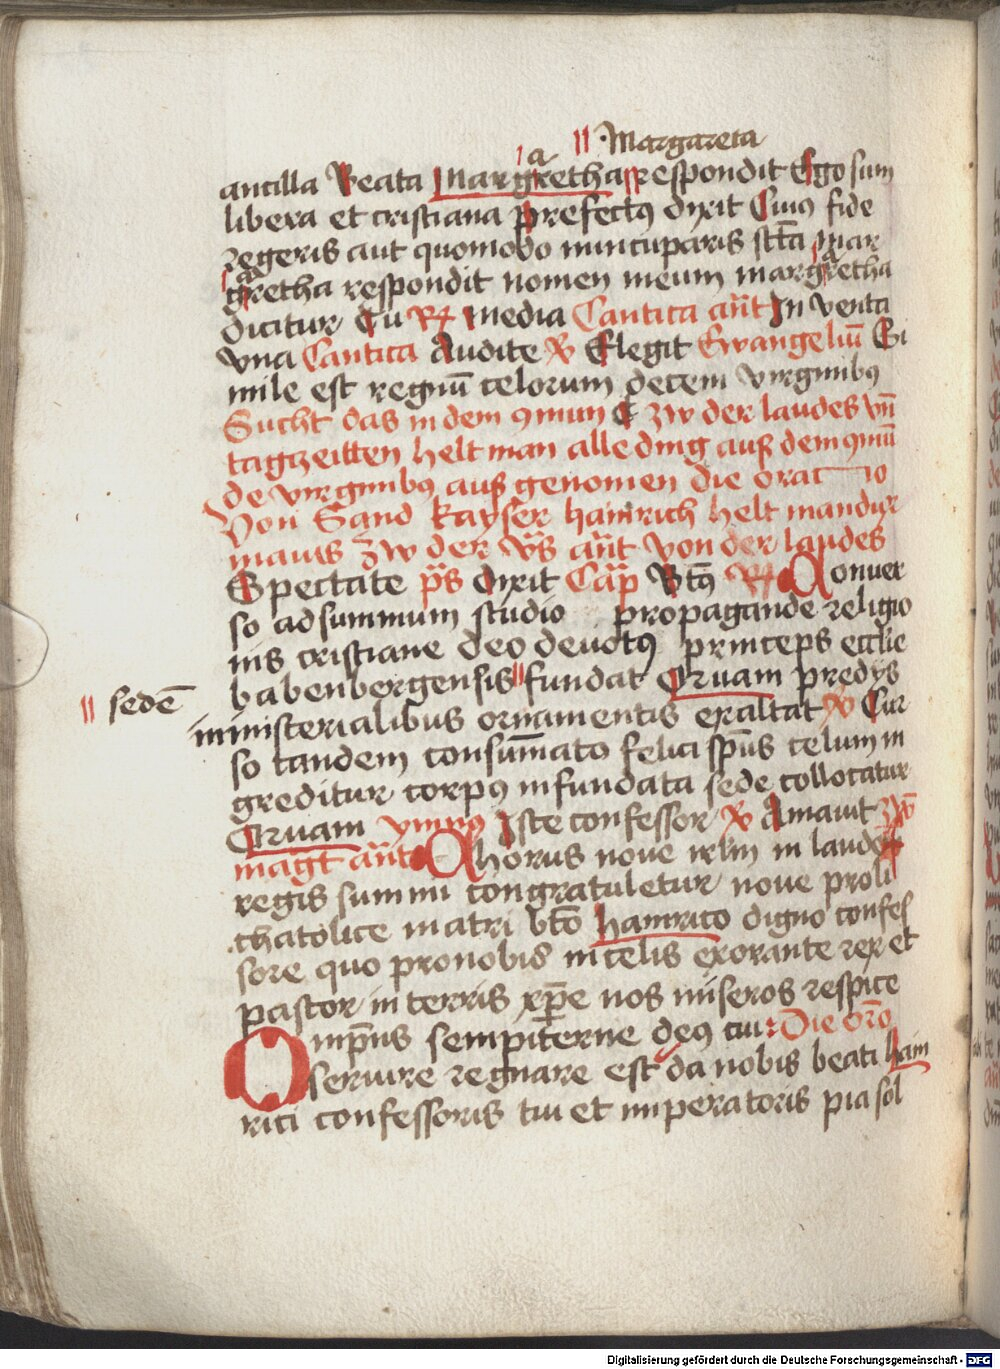 Margareta
a
ancilla Beata Margretha respondit Ego sum
libera et cristiana prefectus dyxit Cuius fide
regeris aut quomodo nuncuparis sctā Mar
gretha respondit nomen meum margretha
dicitur Cu Rx media Cantica añt In venta
vna Cantica Audite V Elegit Ewangeliū Si
mile est regnū celorum decem virginibus
Sucht das in dem 9mun C zw der laudes vñ
tagzeitten helt man alle ding aus dem 9mū
de virginibus aus genomen die oracio
Von Sand kayser hainrich helt man dyx
maws zw der vs añt von der laudes
Spectate ps dyxit Cap Btus Rx Conuer
so ad summum studio propagande religio
nis cristiane deo deuotus princeps ecclie
babenbergensis fundat Qruam predys
sedē
ministerialibus ornamentis exaltat V Cur
so tandem consummato felici spūs celum in
greditur corpus in fundata sede collocatur
Qruam ympus Iste confessor V Amauit zw
magt añt Chorus noue irlm in laude
regis summi congratuletur noue proli
chatolice matri bto hainrico digno confes
sore quo pro nobis in celis exorante rex et
pastor in terris xpe nos miseros respice
Omps sempiterne deus cui Die oro
seruire regnare est da nobis beati hain
rici confessoris tui et imperatoris pia sol
Digitalisierung gefördert durch die Deutsche Forschungsgemeinschaft - DFG